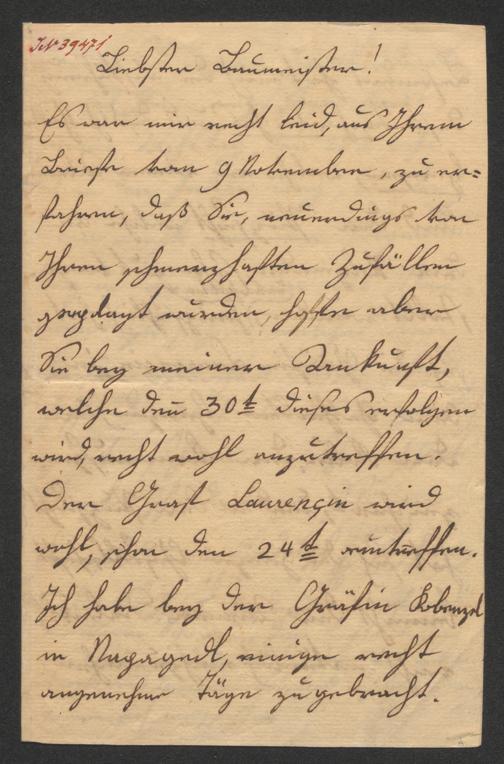 JN 39471
Liebster Baumeister!
Es war mir recht leid, aus Ihrem
Briefe vom 9 November, zu er=
fahren, daß Sie, neuerdings von
Ihren schmerzhaften Zufällen
geplagt wurden, hoffe aber
Sie bey meiner Ankunft,
welche den 30t dieses erfolgen
wird, recht wohl anzutreffen.
Der Graf Laurençin wird
wohl, schon den 24t eintreffen.
Ich habe bey der Gräfin Kobenzel
in Napagedl, einige recht
angenehme Täge zugebracht.